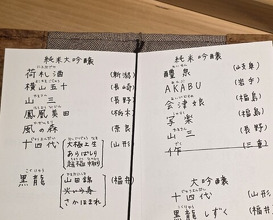 純米大吟醸
荷札酒 (新潟)
横山五十 (長崎)
山三 (長野)
鳳凰美田 (栃木)
風の森 (奈良)
十四代 (山形)
大極上生
あらばしり
超特撰
黒龍 (福井)
山田錦
火いら寿
さかほまれ
純米吟醸
醴泉 (岐阜)
AKABU (岩手)
会津 (福島)
写楽 (福島)
山三 (長野)
(三重)
大吟醸
十四代 (山形)
黒龍 しずく (福井)